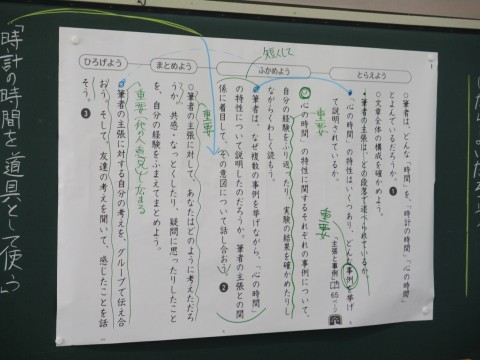 とらえよう
○筆者は、どんな「時間」を、「時計の時間」「心の時間」
とよんでいるだろうか。❶
○文章全体の構成を確かめよう。
・筆者の主張は、どの段落で述べられているか。
・「心の時間」の特性はいくつあり、どんな事例を挙げ
て説明されているか。
「主張と事例」
65ページ
重要
ふかめよう
短くして
○「心の時間」の特性に関するそれぞれの事例について、
自分の経験をふり返ったり、実験の結果を確かめたりし
ながらくわしく読もう。
重要
○筆者は、なぜ複数の事例を挙げながら、「心の時間」
の特性について説明したのだろうか。筆者の主張との関
係に着目して、その意図について話し合おう。❷
まとめよう
重要
○筆者の主張に対して、あなたはどのように考えただろ
うか。共感・なっとくしたり、疑問に思ったりしたこと
を、自分の経験をふまえてまとめよう。
ひろげよう
○筆者の主張に対する自分の考えを、グループで伝え合
おう。そして、友達の考えを聞いて、感じたことを話
そう。❸
重要
広まる
「時計の時間を道具として使う」